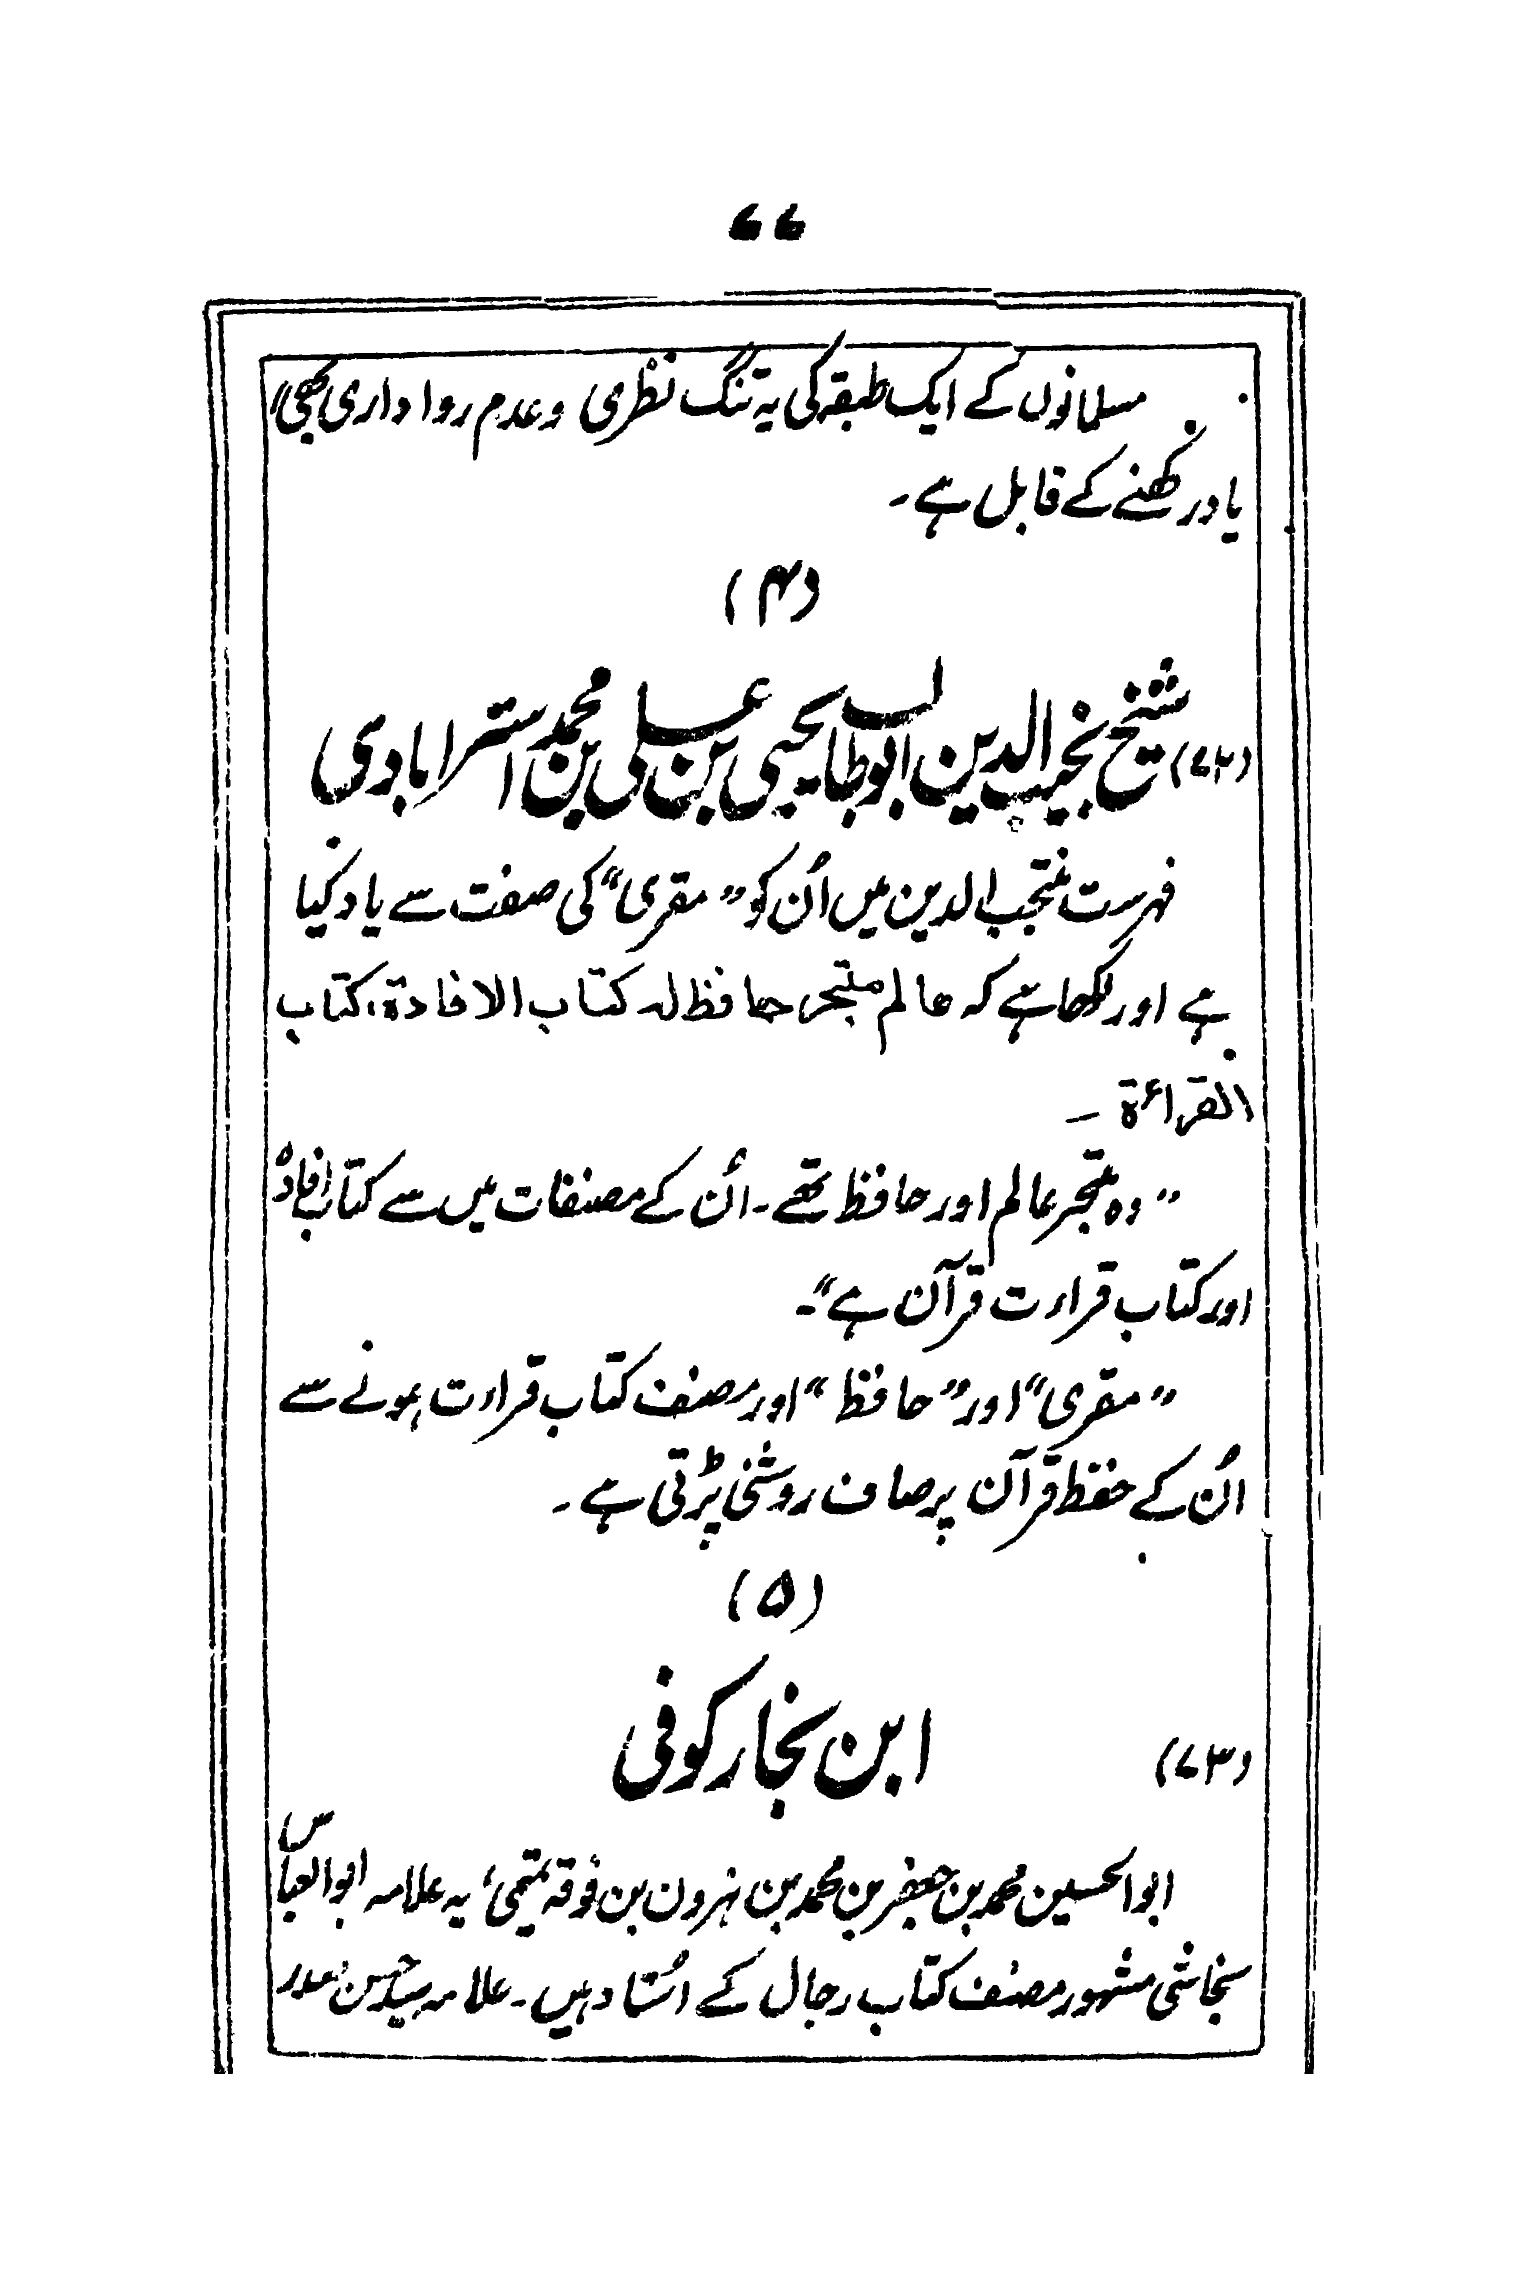 ۷۷
مسلمانوں کے ایک طبقہ کی یہ تنگ نظری و عدم رواداری بھی"
یاد رکھنے کے قابل ہے۔
(۴)
(۷۲) شیخ نجیب الدین ابوطالب یحییٰ بن علی بن محمد استرابادی
فہرست منتجب الدین میں اُن کو "مقری" کی صفت سے یاد کیا
ہے اور لکھا ہے کہ عالم متبحر حافظ لہ کتاب الافادۃ، کتاب
القراءۃ ـ
"وہ متبحر عالم اور حافظ تھے۔ اُن کے مصنفات میں سے کتاب افادہ
اور کتاب قراءت قرآن ہے"۔
"مقری" اور "حافظ" اور مصنف کتاب قراءت ہونے سے
اُن کے حفظ قرآن پر صاف روشنی پڑتی ہے۔
(۵)
(۷۳) ابن نجار کوفی
ابوالحسین محمد بن جعفر بن محمد بن ہرون بن فوقہ تمیمی، یہ علامہ ابوالعباس
نجاشی مشہور مصنف کتاب رجال کے اُستاد ہیں۔ علامہ سید حسن صدر